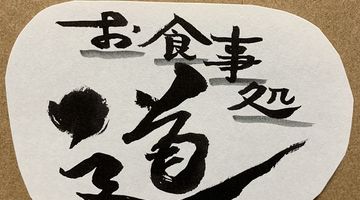 お食事処
道